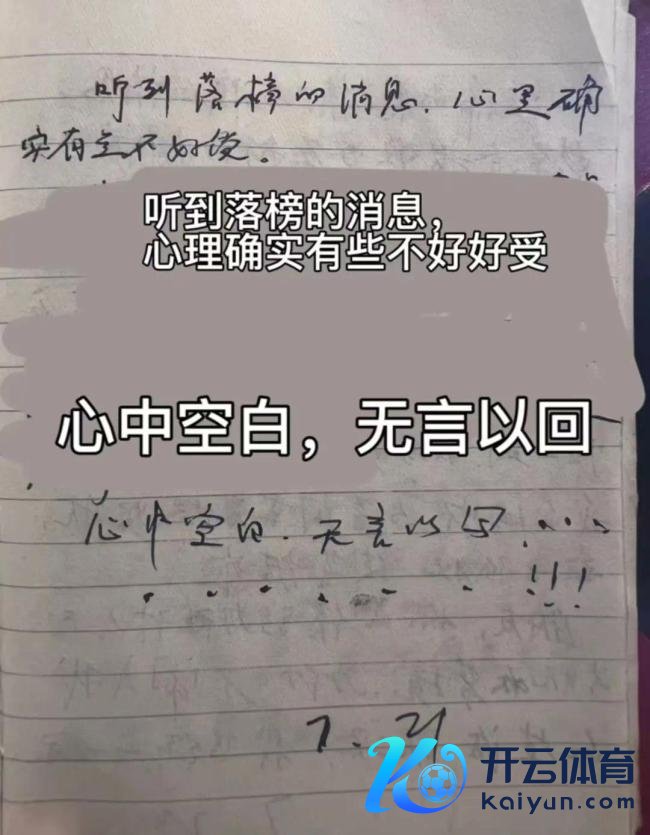 听到落榜的消息.心里确
实有些不好受。
听到落榜的消息，
心理确实有些不好好受
心中空白，无言以回
心中空白.无言以写....
......!!!
开云体育
kaiyun.com